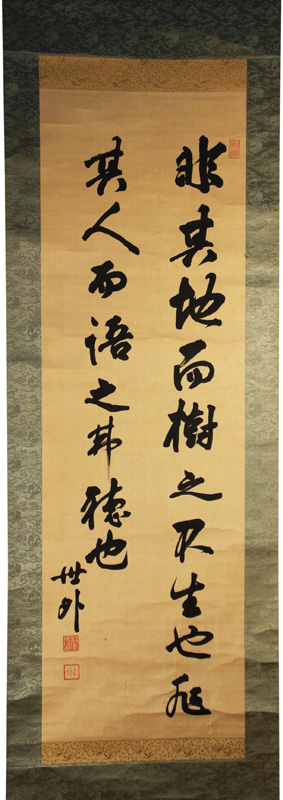 非其地而樹之不生也非
其人而語之弗聽也
世外